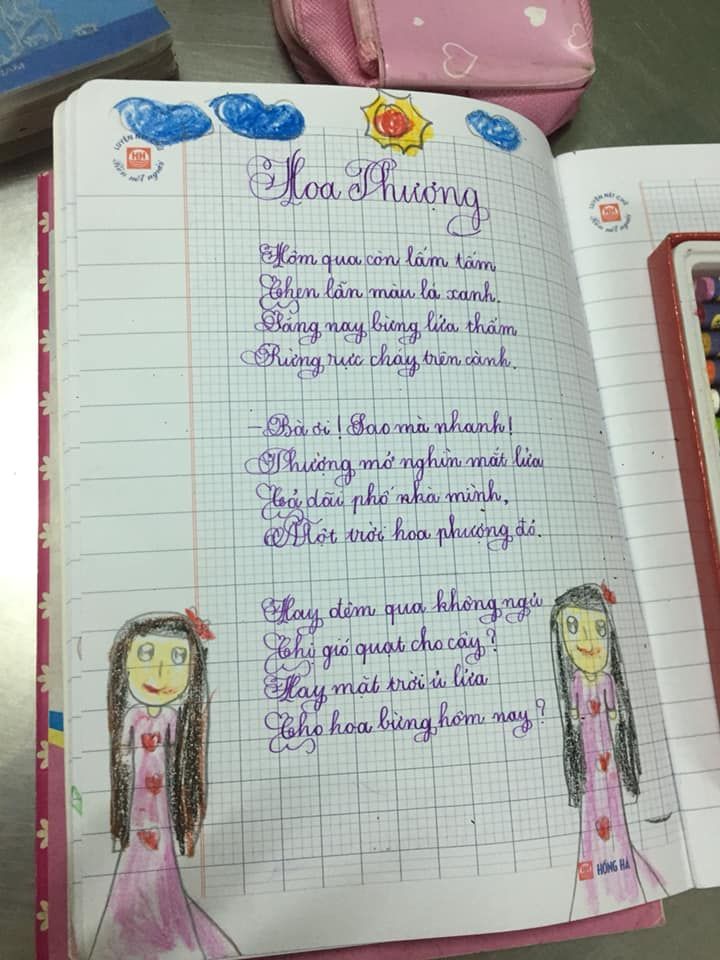 LUYỆN NÉT CHỮ
HH
Rèn nết người
Hoa Phượng
Hôm qua còn lấm tấm
Chen lẫn màu lá xanh.
Sáng nay bừng lửa thẫm
Rừng rực cháy trên cành.
- Bà ơi! Sao mà nhanh!
Phượng mở nghìn mắt lửa
Cả dãy phố nhà mình,
Một trời hoa phượng đỏ.
Hay đêm qua không ngủ
Chị gió quạt cho cây?
Hay mặt trời ủ lửa
Cho hoa bừng hôm nay?
HH HỒNG HÀ
LUYỆN NÉT CHỮ
HH
Rèn nết người